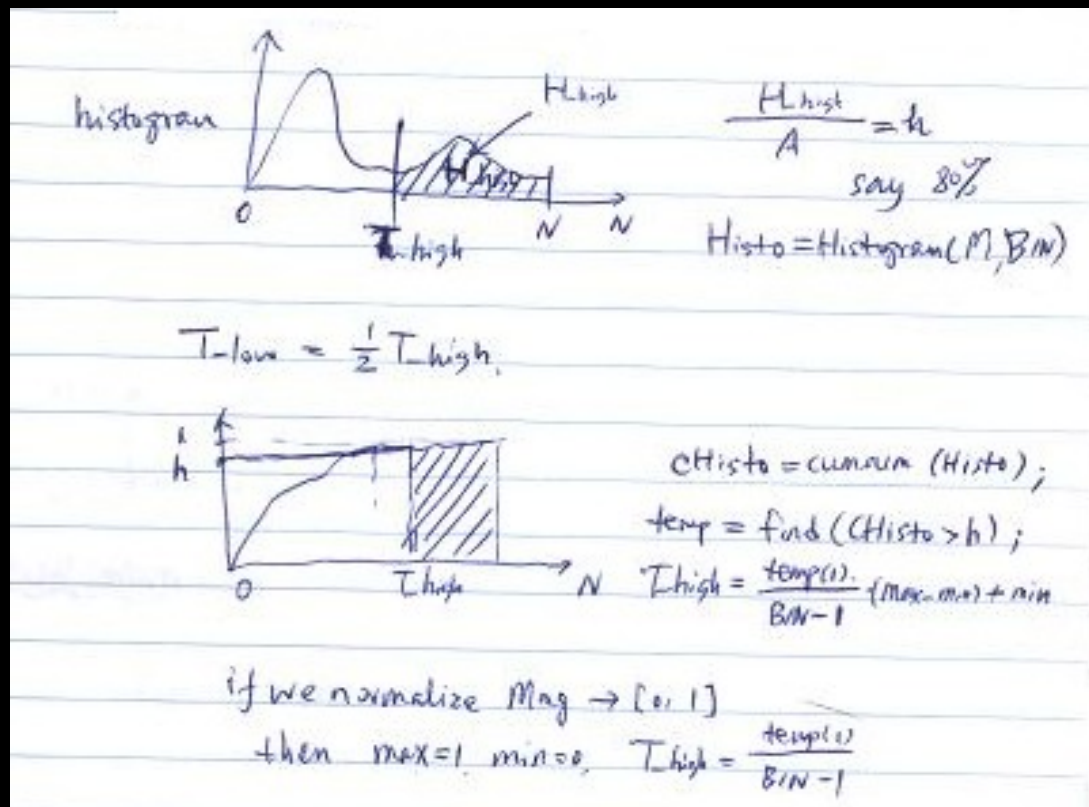 histogram
H_high
0
T_high
N
N
H_high / A = h
say 80%
Histo = Histogram(M, BIN)
T_low = 1/2 T_high.
1
h
0
T_high
N
cHisto = cumsum (Histo);
temp = find (CHisto > h);
T_high = temp(1). / BIN-1 (max-min) + min
if we normalize Mag → [0, 1]
then max=1, min=0, T_high = temp(1) / BIN-1